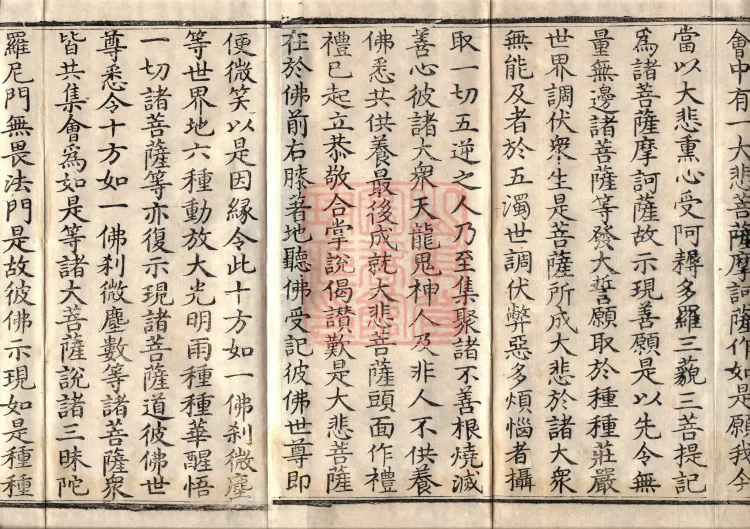 會中有一大悲菩薩摩訶薩作如是願我今
當以大悲熏心受阿耨多羅三藐三菩提記
為諸菩薩摩訶薩故示現善願是以先令無
量無邊諸菩薩等發大誓願取於種種莊嚴
世界調伏衆生是菩薩所成大悲於諸大衆
無能及者於五濁世調伏弊惡多煩惱者攝
取一切五逆之人乃至集聚諸不善根燒滅
善心彼諸大衆天龍鬼神人及非人不供養
佛悉共供養最後成就大悲菩薩頭面作禮
禮已起立恭敬合掌說偈讃歎是大悲菩薩
在於佛前右膝著地聽佛受記彼佛世尊即
便微笑以是因緣令此十方如一佛剎微塵
等世界地六種動放大光明雨種種華醒悟
一切諸菩薩等亦復示現諸菩薩道彼佛世
尊悉令十方如一佛剎微塵數等諸菩薩衆
皆共集會為如是等諸大菩薩說諸三昧陀
羅尼門無畏法門是故彼佛示現如是種種